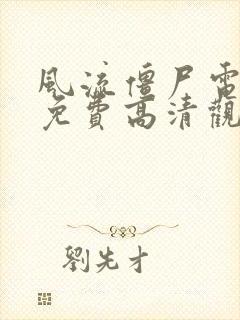 風流僵尸電
免費高清觀
劉先才